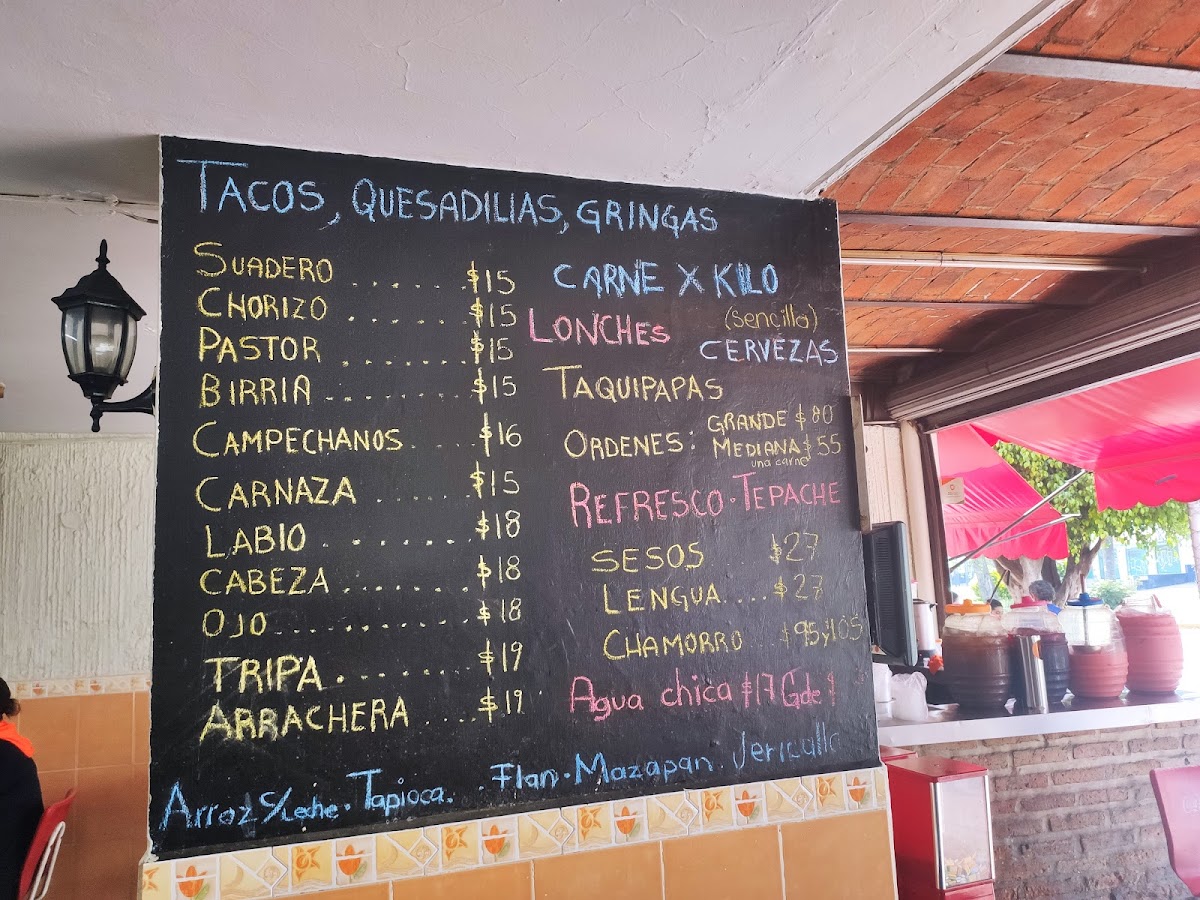 TACOS, QUESADILIAS, GRINGAS
SUADERO ....... $15
CHORIZO ....... $15
PASTOR ....... $15
BIRRIA ........ $15
CAMPECHANOS ..... $16
CARNAZA ...... $15
LABIO ........ $18
CABEZA ....... $18
OJO .......... $18
TRIPA ........ $19
ARRACHERA .... $19
CARNE X KILO
LONCHES (Sencillo)
CERVEZAS
TAQUIPAPAS
ORDENES: GRANDE $80
MEDIANA $55
una carne
REFRESCO · TEPACHE
SESOS $27
LENGUA.... $27
CHAMORRO $95 y 105
Agua chica $17 Gde $
Arroz S/Leche · Tapioca. . Flan · Mazapan. Jericalla